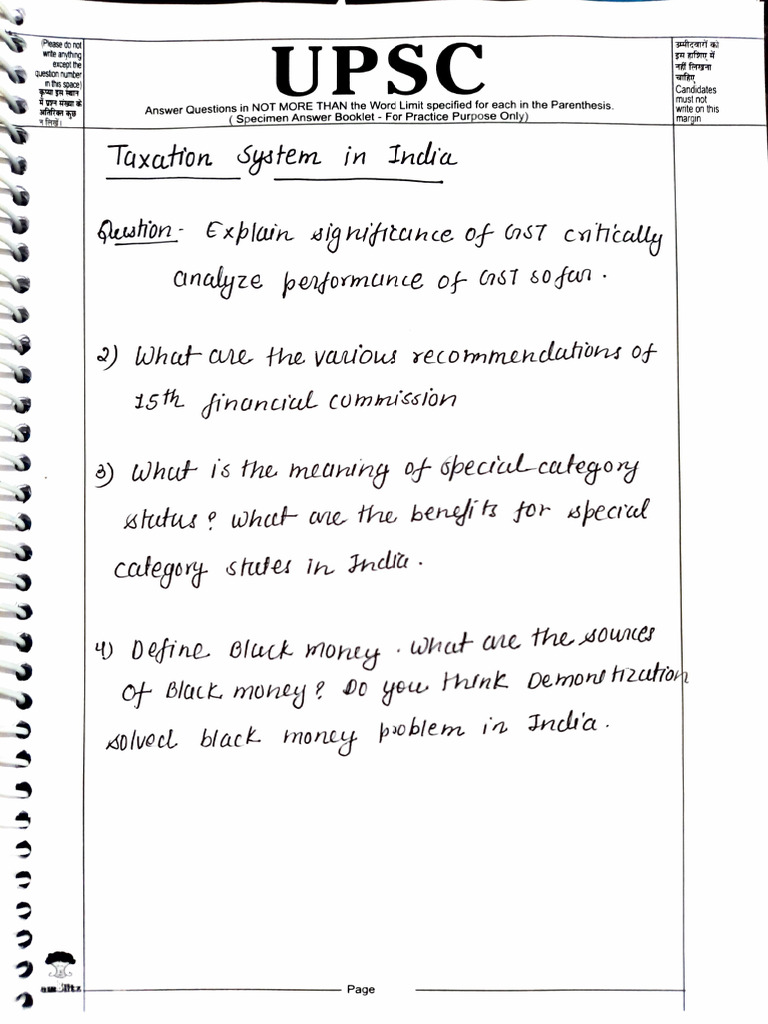 (Please do not
write anything
except the
question number
in this space)
कृप्या इस स्थान
में प्रश्न संख्या के
अतिरिक्त कुछ
न लिखें।
UPSC
Answer Questions in NOT MORE THAN the Word Limit specified for each in the Parenthesis.
( Specimen Answer Booklet - For Practice Purpose Only)
उम्मीदवारों को
इस हाशिए में
नहीं लिखना
चाहिए
Candidates
must not
write on this
margin
Taxation System in India
Question- Explain significance of GST critically
analyze performance of GST so far.
2) What are the various recommendations of
15th financial commission
3) What is the meaning of special category
status? What are the benefits for special
category states in India.
4) Define Black money. What are the sources
of Black money? Do you think Demonetization
solved black money problem in India.
Page